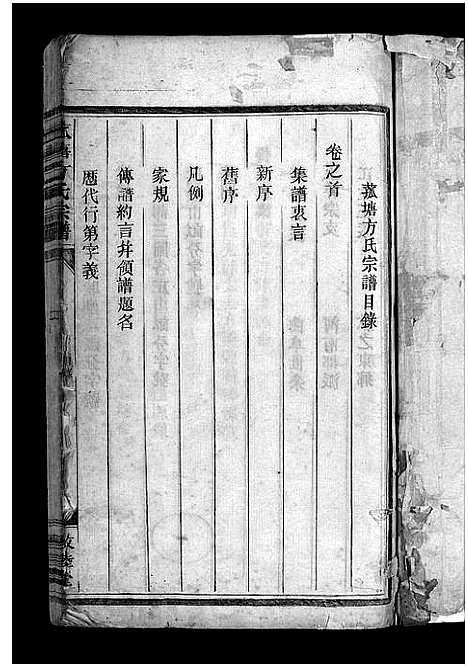 菰塘方氏宗譜目錄
卷之首
集譜衷言
新序
舊序
凡例
家規
傳譜約言并領譜題名
歷代行第字義